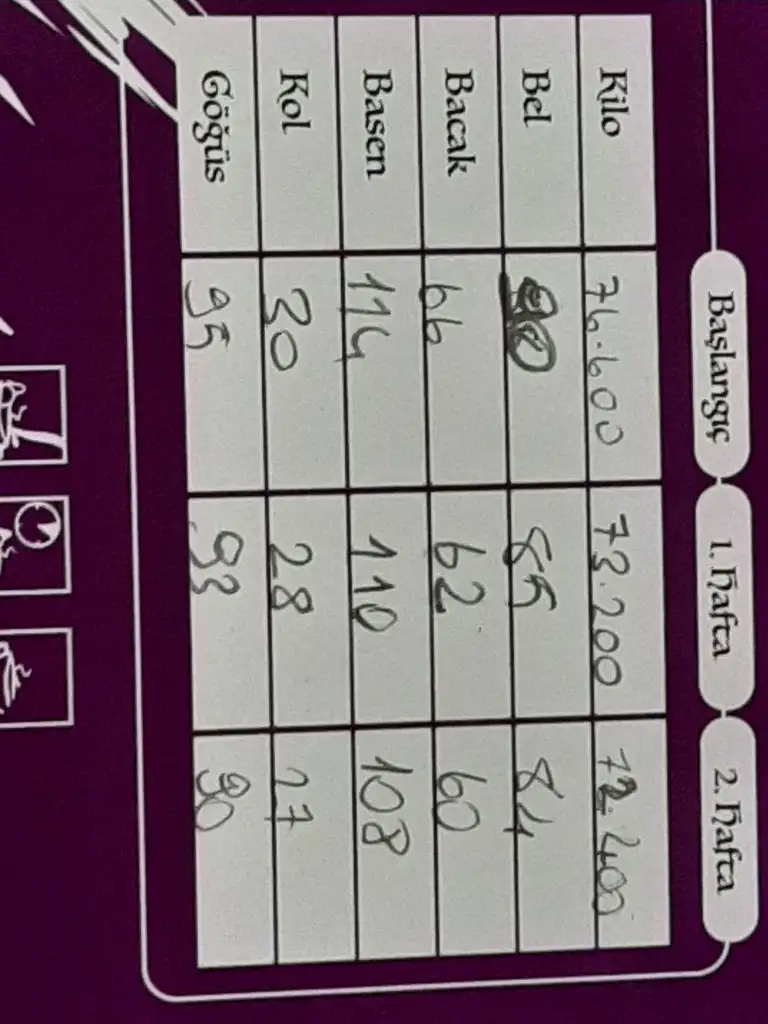 Başlangıç 1. Hafta 2. Hafta
Kilo 76.600 73.200 72.400
Bel 90 85 84
Bacak 66 62 60
Basen 114 110 108
Kol 30 28 27
Göğüs 95 93 90